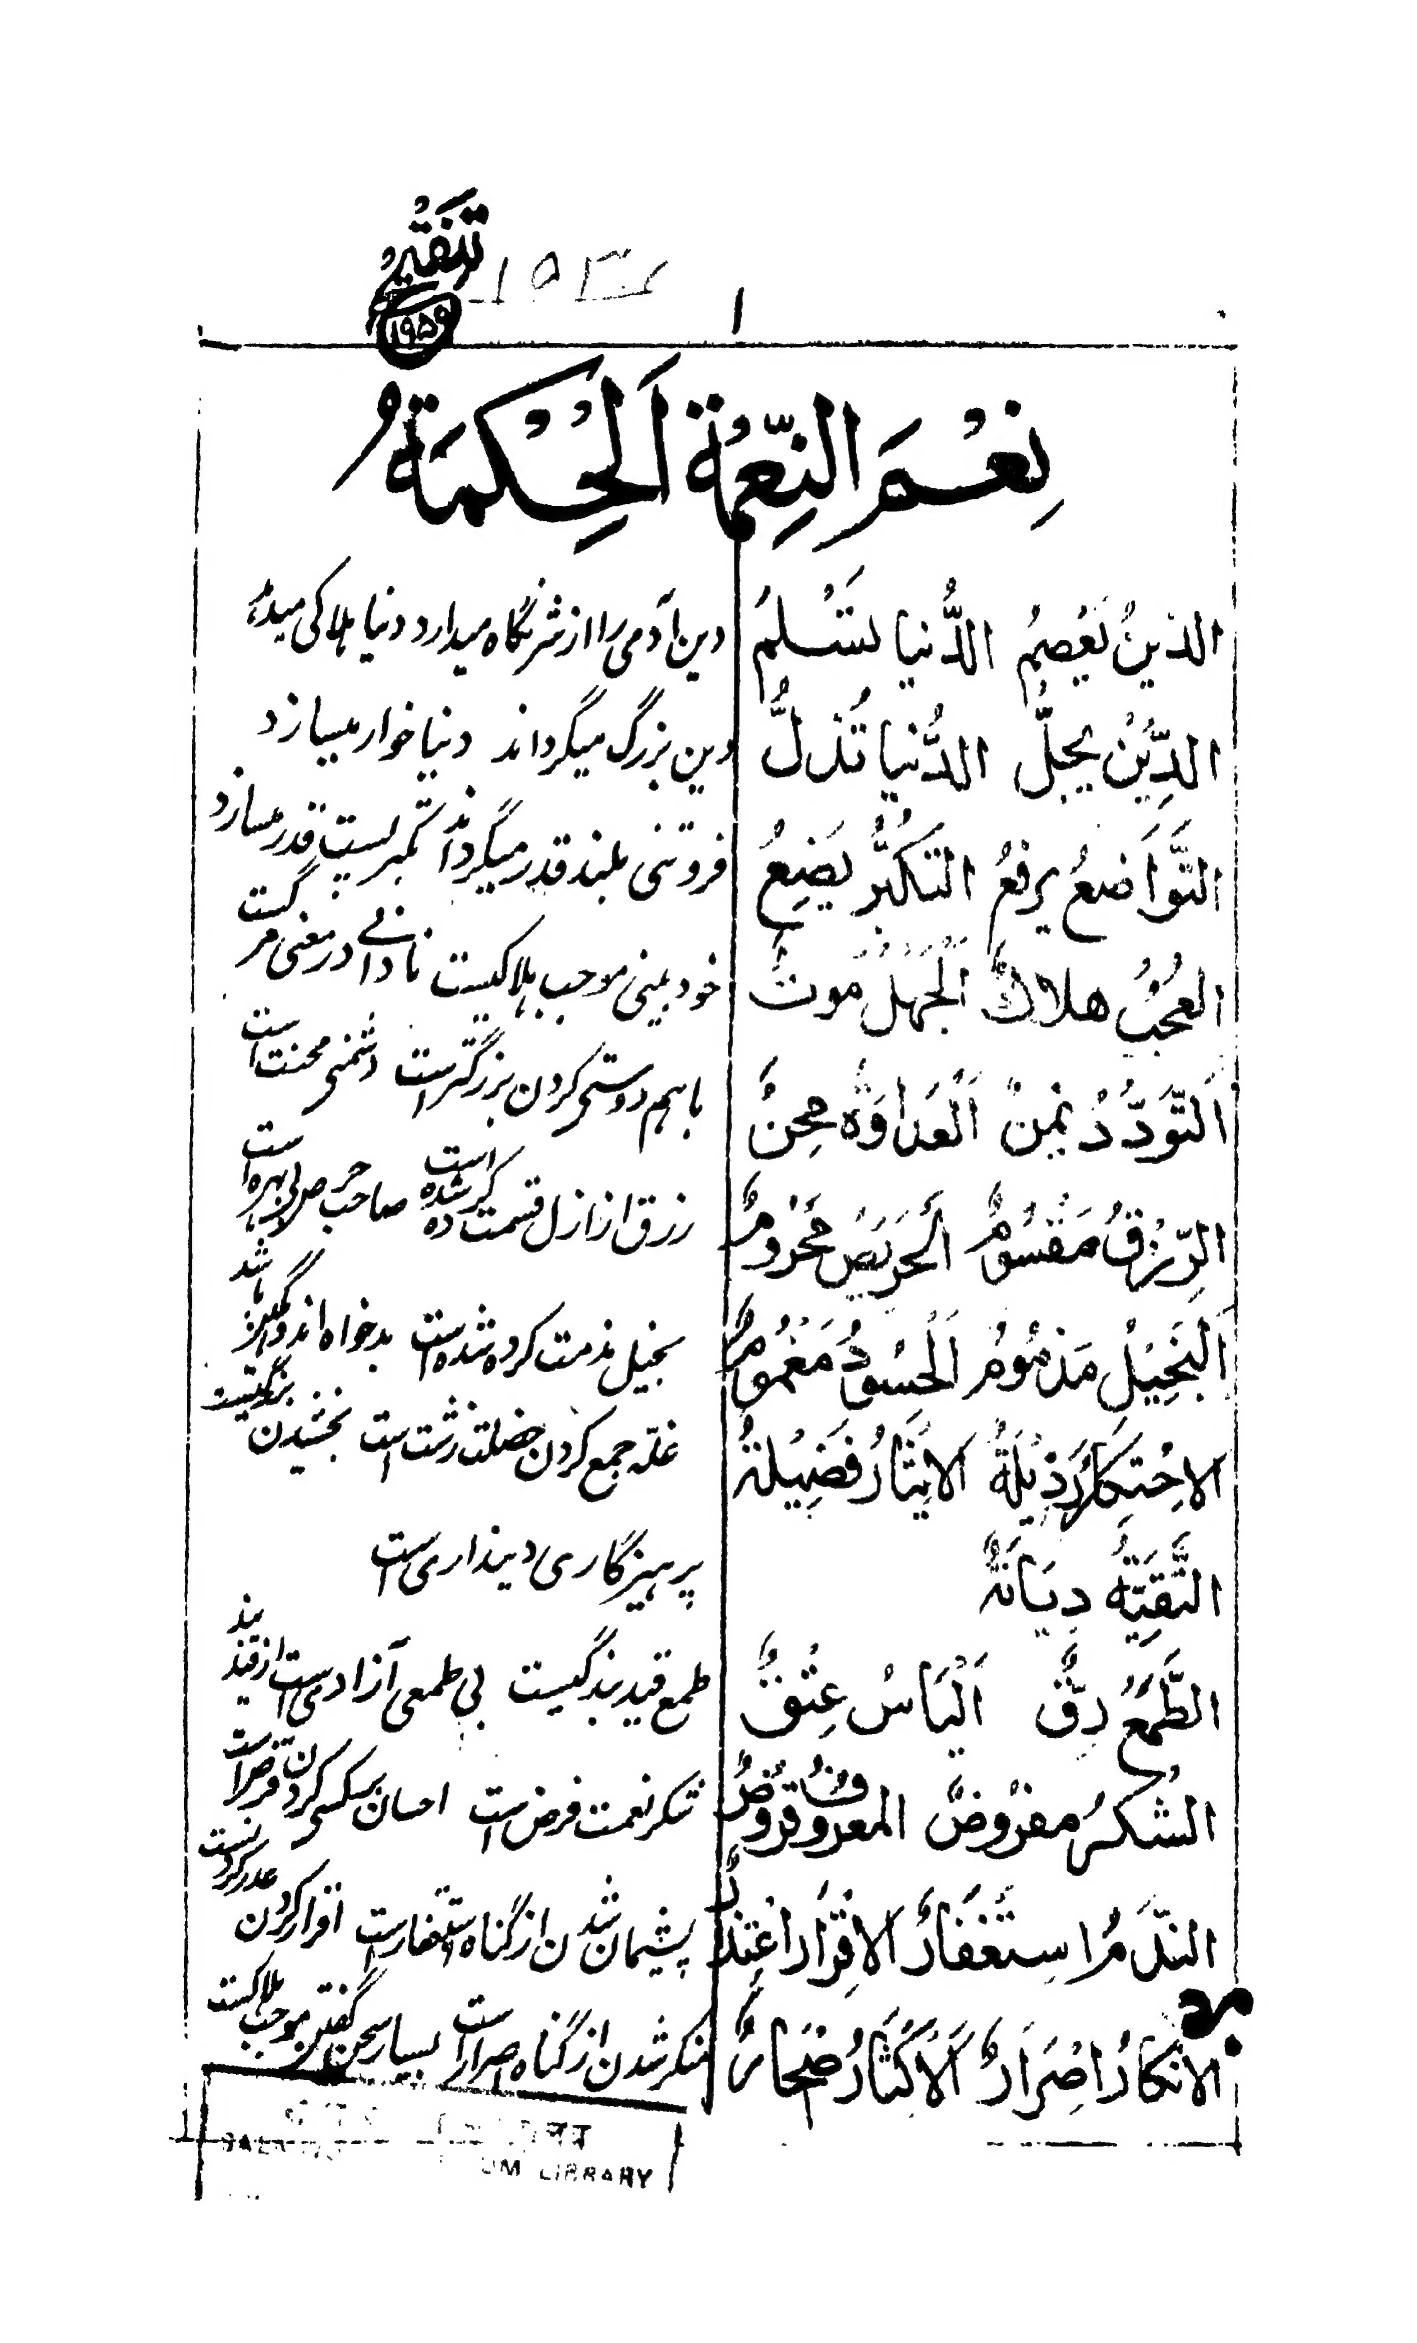 تنقیح
۱۹۵۹
۱
نِعْمَ النِّعْمَةُ اَلْحِكْمَةُ
الدّينُ يَعْصِمُ الدُّنيا تسْلِمُ دین آدمی را از شر نگاه میدارد دنیا هلاکی میدهد
الدِّيْنُ يجلُّ الدُّنيا تُذلُّ دین بزرگ میگرداند دنیا خوار میسازد
التَّوَاضعُ يرفعُ التكبُّرُ يضِعُ فروتنی بلند قدر میگرداند تکبر پست قدر میسازد
العجبُ هلاكٌ اَلجَهْلُ مَوتٌ خود بینی موجب هلاکیست نادانی در معنی مرگست
اَلتَّوَدُّدُ يمنٌ اَلْعَدَاوَةُ مِحنٌ باهم دوستی کردن بزرگتر است دشمنی محنت است
الرِّزْقُ مَقْسُومٌ اَلحَرِيصُ مَحْرُومٌ رزق از ازل قسمت کرده شده است صاحب حرص را بی بهره است
اَلبَخِيْلُ مَذمُومٌ اَلْحسُودُ مَغْمُومٌ بخیل مذمت کرده شده است بدخواه اندوهگین باشد
الاحْتِكَارُ رَذِيْلَةٌ الايْثَارُ فَضِيْلَةٌ غلّه جمع کردن خصلت زشت است بخشیدن بزرگیست
التَّقِيَّةُ دِيَانَةٌ پرهیزگاری دینداری است
الطَّمَعُ رِقٌّ اَلْيَاسُ عِتْقٌ طمع قید بندگیست بی طمعی آزادی است از قید بند
الشُكرُ مفرُوضٌ المعرُوفُ قروضٌ شکر نعمت فرض است احسان بکسی کردن قرض است
النّدَمُ اسِتغْفَارٌ الاقْرَارُ اعْتِذَارٌ پشیمان شدن از گناه استغفار است اقرار کردن عذر کردنست
الانكارُ اصْرَارٌ اَلاكْثَارُ ضجَارٌ منکر شدن از گناه اصرار است بسیار سخن گفتن موجب هلاکیست
LIBRARY